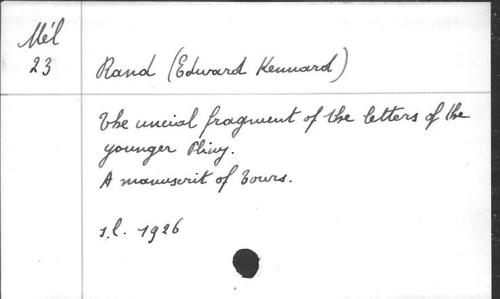 Mél
23
Rand (Edward Kennard)
The uncial fragment of the letters of the
younger Pliny.
A manuscrit of Tours.
s.l. 1926